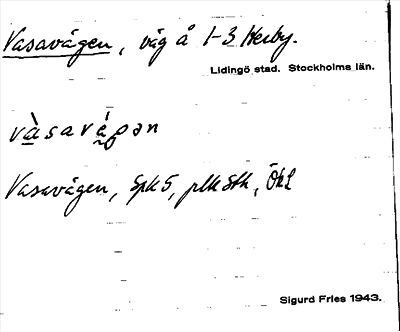 Vasavägen, väg å 1-3 Herby.
Lidingö stad. Stockholms län.
vàsavä́gən
Vasavägen, Spk 5, plk Sth, ÖkL
Sigurd Fries 1943.